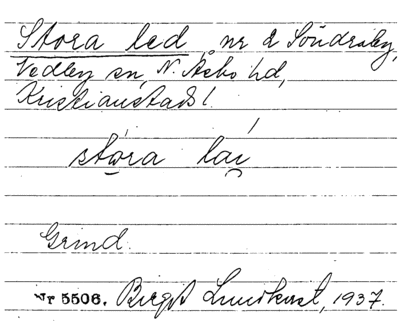 Stora led, nr 2 Söndraby,
Vedby sn, N. Åsbo hd,
Kristianstads l.
stora lai
Grind.
Nr 5506. Birgit Lundkvist, 1937.